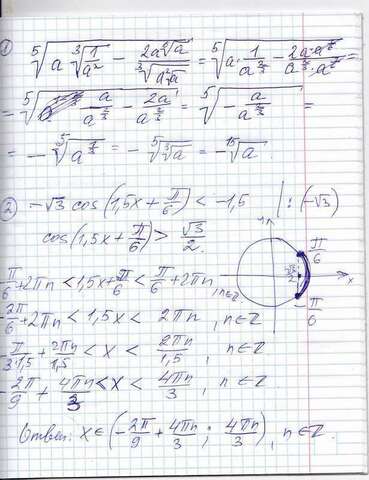 ① ⁵√(a ³√(1/a²)) - 2a ... = ⁵√(a · 1/a^(2/3) - ...) =
= ⁵√(a/a^(2/3) - 2a/a^(2/3)) = ⁵√(-a/a^(2/3)) =
= - ⁵√(a^(1/3)) = - ⁵√(³√a) = - ¹⁵√a.
② -√3 cos(1,5x + π/6) < -1,5 | : (-√3)
cos(1,5x + π/6) > √3/2.
π/6
√3/2
x
-π/6
π/6 + 2πn < 1,5x + π/6 < π/6 + 2πn, n∈Z
-2π/6 + 2πn < 1,5x < 2πn, n∈Z
-π/3·1,5 + 2πn/1,5 < x < 2πn/1,5, n∈Z
-2π/9 + 4πn/3 < x < 4πn/3, n∈Z
Ответ: x∈(-2π/9 + 4πn/3; 4πn/3), n∈Z.